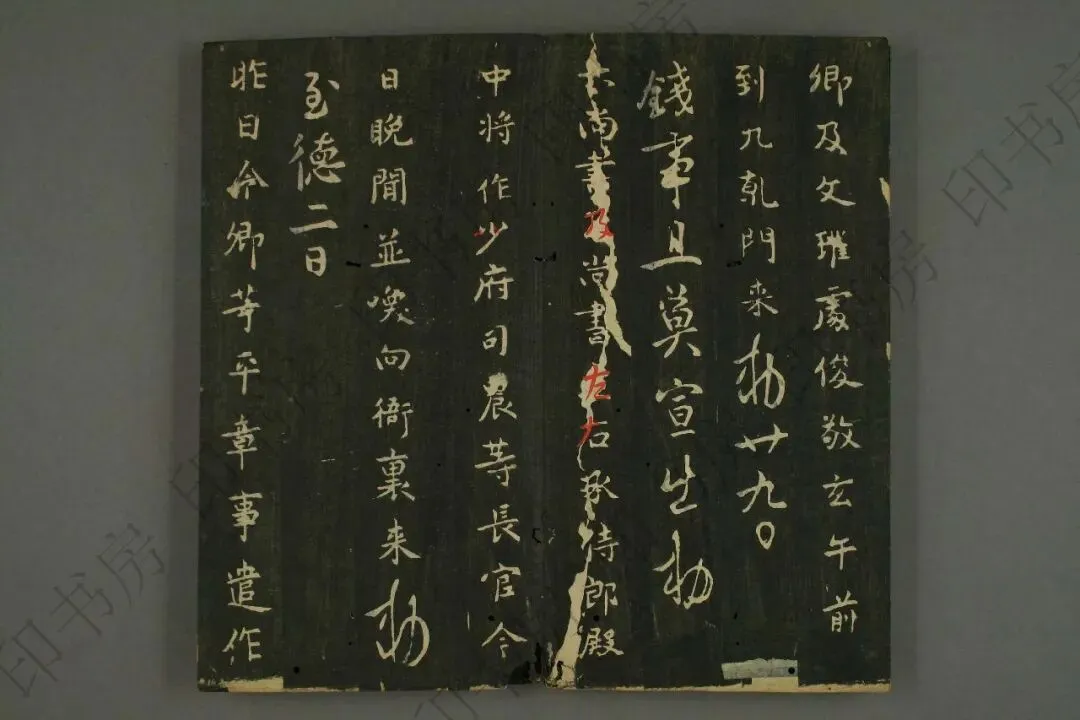 卿及文瓘處俊敬玄午前
到九乳門来勅廿九日
錢事且莫宣出勅
六尚書及尚書左右丞侍郎殿
中将作少府司農等長官今
日晚間並喚向衙裏来勅
至德二日
昨日令卿等平章事遣作
印书房